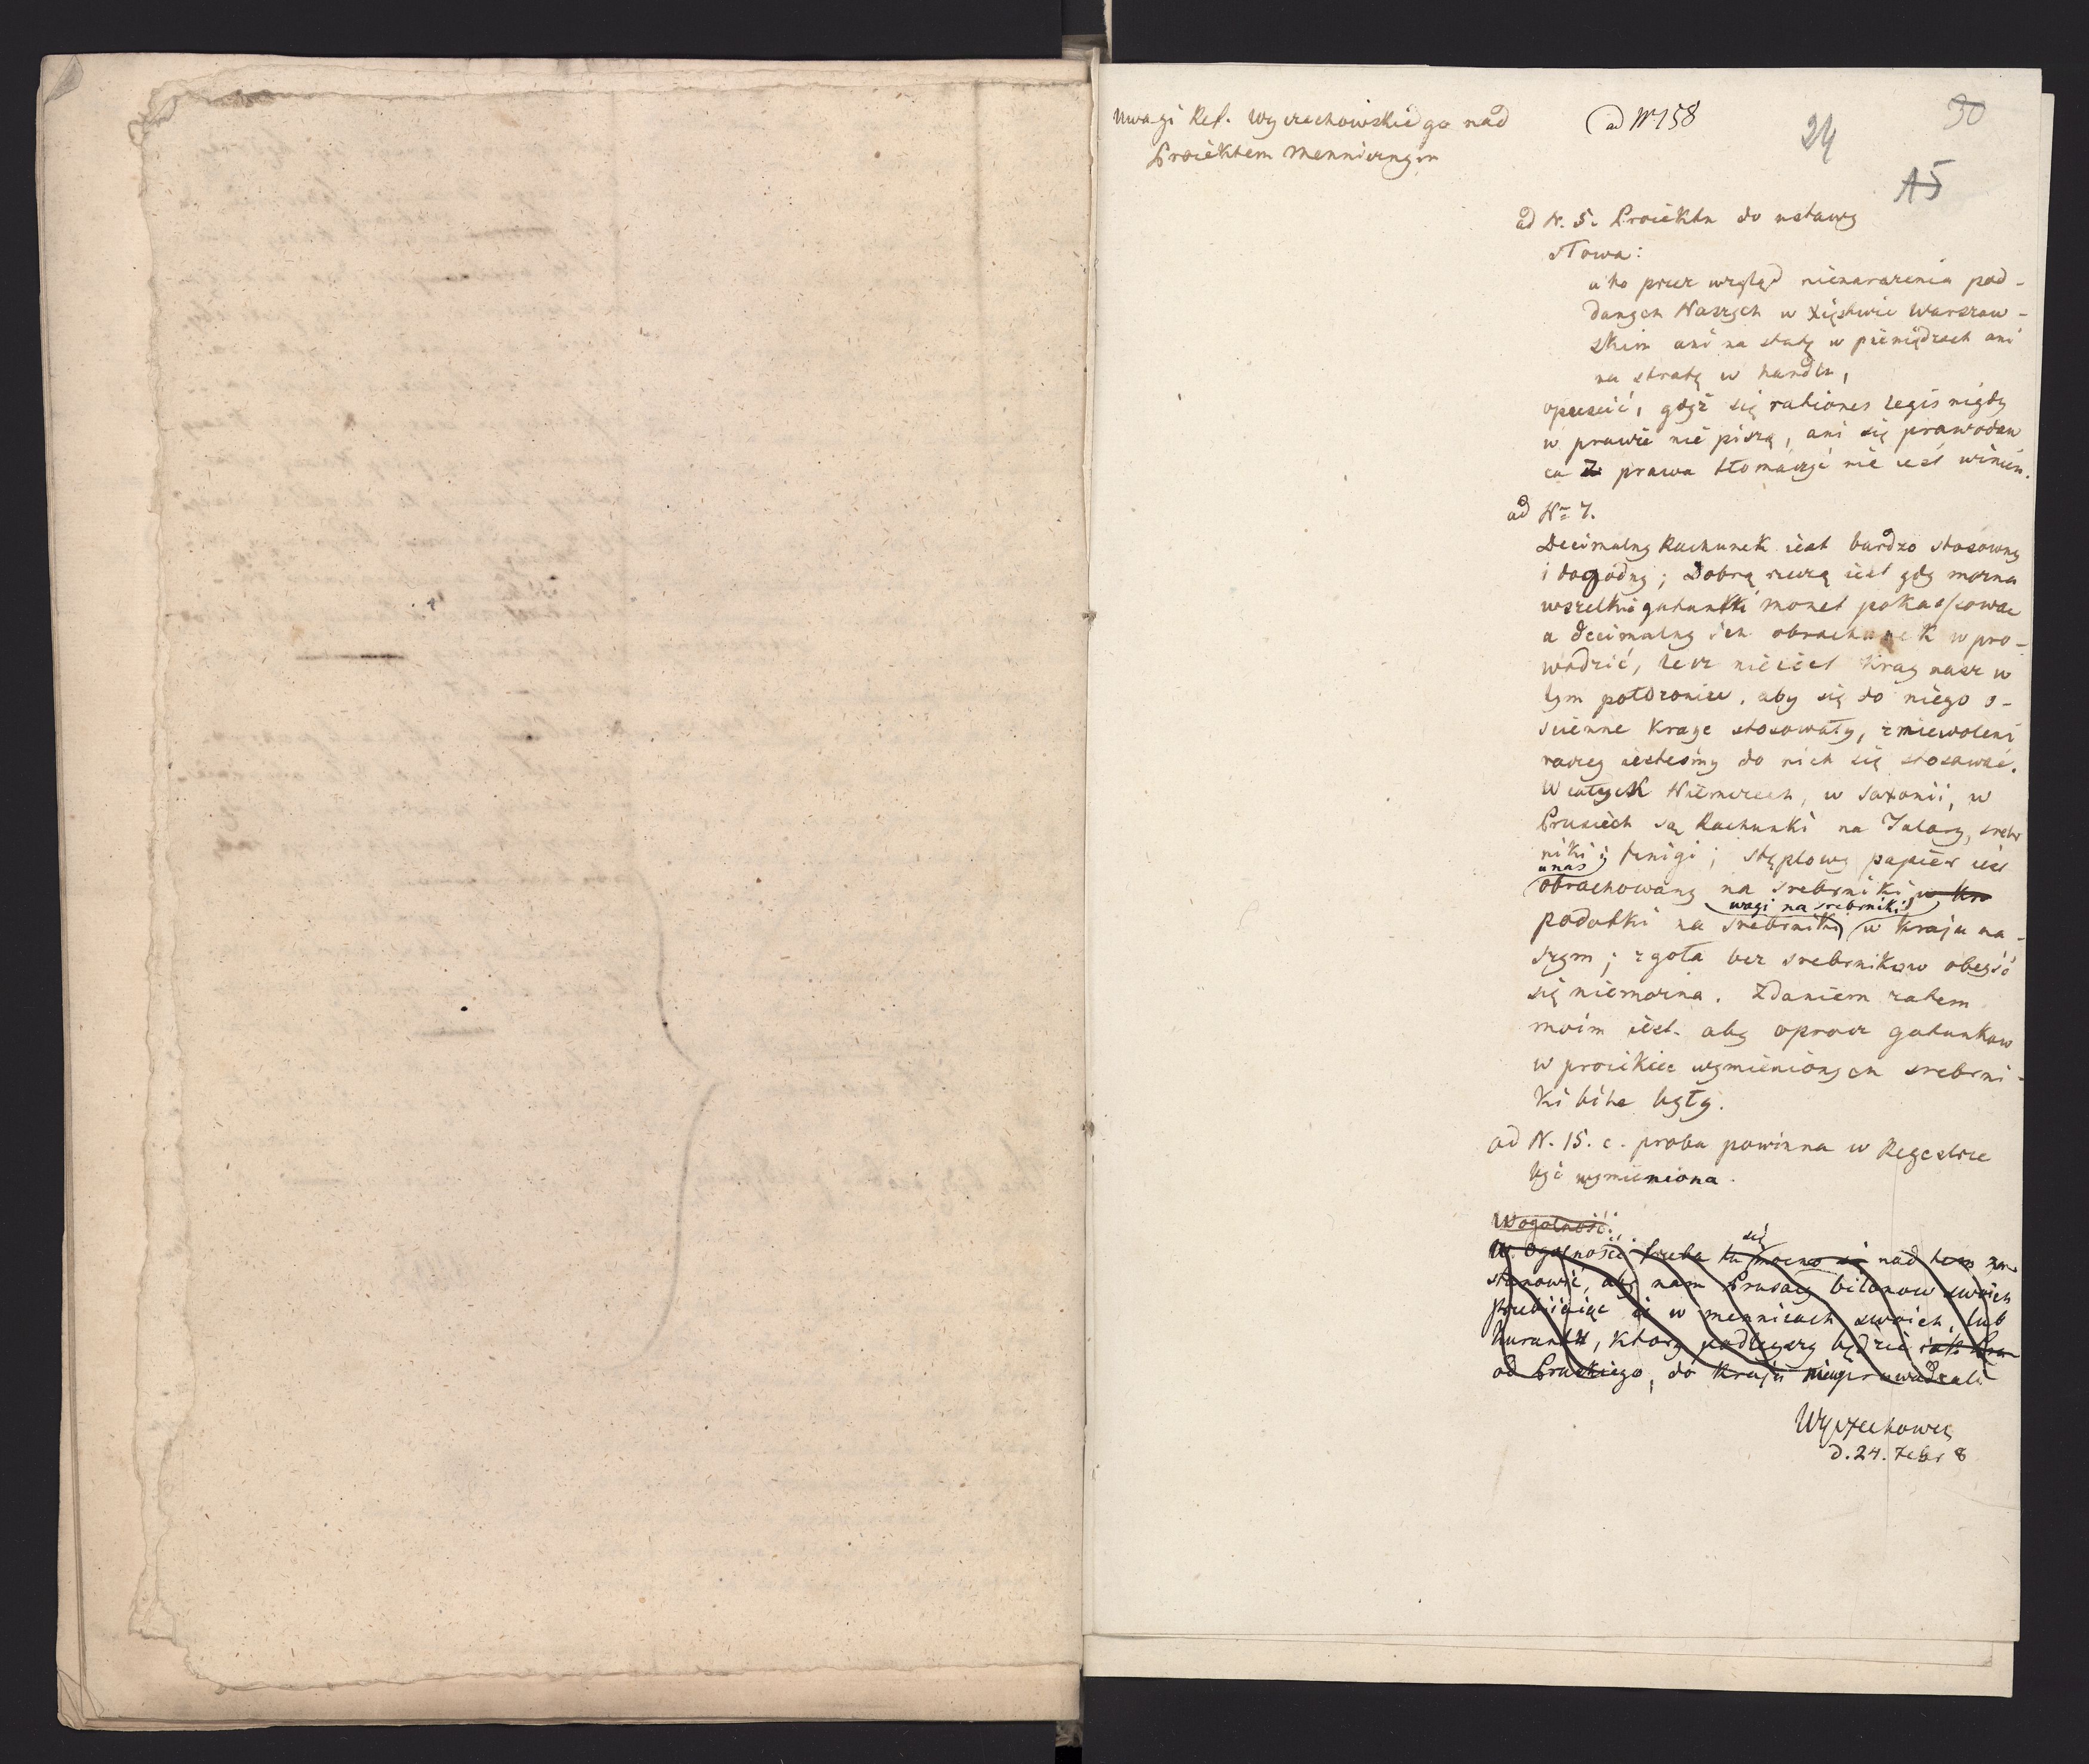 Uwagi Ref. Wyczechowskiego nad
Proiektem Mennicznym
ad Nr 158
24
30
A5
ad N. 5. Proiektu do ustawy
słowa:
a to przez wzgląd nienarażenia pod-
danych Naszych w Xięstwie Warszaw-
skim ani na statę w pieniądzach ani
na stratę w handlu,
opuścić, gdyż się rationes legis nigdy
w prawie nie piszą, ani się prawodaw
ca z prawa tłomaczyć nie iest winien.
ad Nr 7.
Decimalny Rachunek iest bardzo stosowny
i dogodny; Dobrą rzeczą iest gdy można
wszelkie gatunki monet pokassować
a decimalny ich obrachunek wpro-
wadzić, lecz nie iest kray nasz w
tym położeniu, aby się do niego o-
ścienne kraye stosowały, zniewoleni
raczey iesteśmy do nich się stosować.
W całych Niemczech, w Saxonii, w
Prusiech są Rachunki na Talary, srebr
niki i fenigi; stęplowy papier iest
u nas
obrachowany na srebrniki, w kra
wagi na srebrniki
podatki na srebrniki w kraju na-
szym; zgoła bez srebrnikow obeyść
się niemożna. Zdaniem zatem
moim iest. aby oprocz gatunkow
w proiekcie wymienionych srebrni-
ki bite były.
ad N. 15. c. proba powinna w Regestrze
być wymieniona.
Wogolność:
się
W Ogolności trzeba tu mocno się nad tem zas
stanowić, aby nam Prusacy bilonow swoich
przebiiaiąc ie w mennicach swoich, lub
kurant, ktory podleyszy będzie iak Pru
od Pruskiego, do kraju nieprowadzali
Wyczechows
d. 24. Febr 8